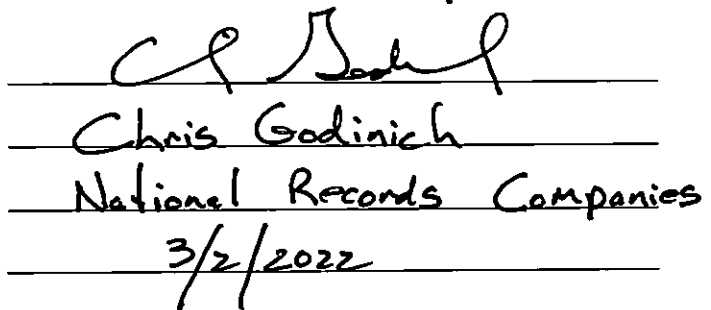 Chris Godinich
National Records Companies
3/2/2022